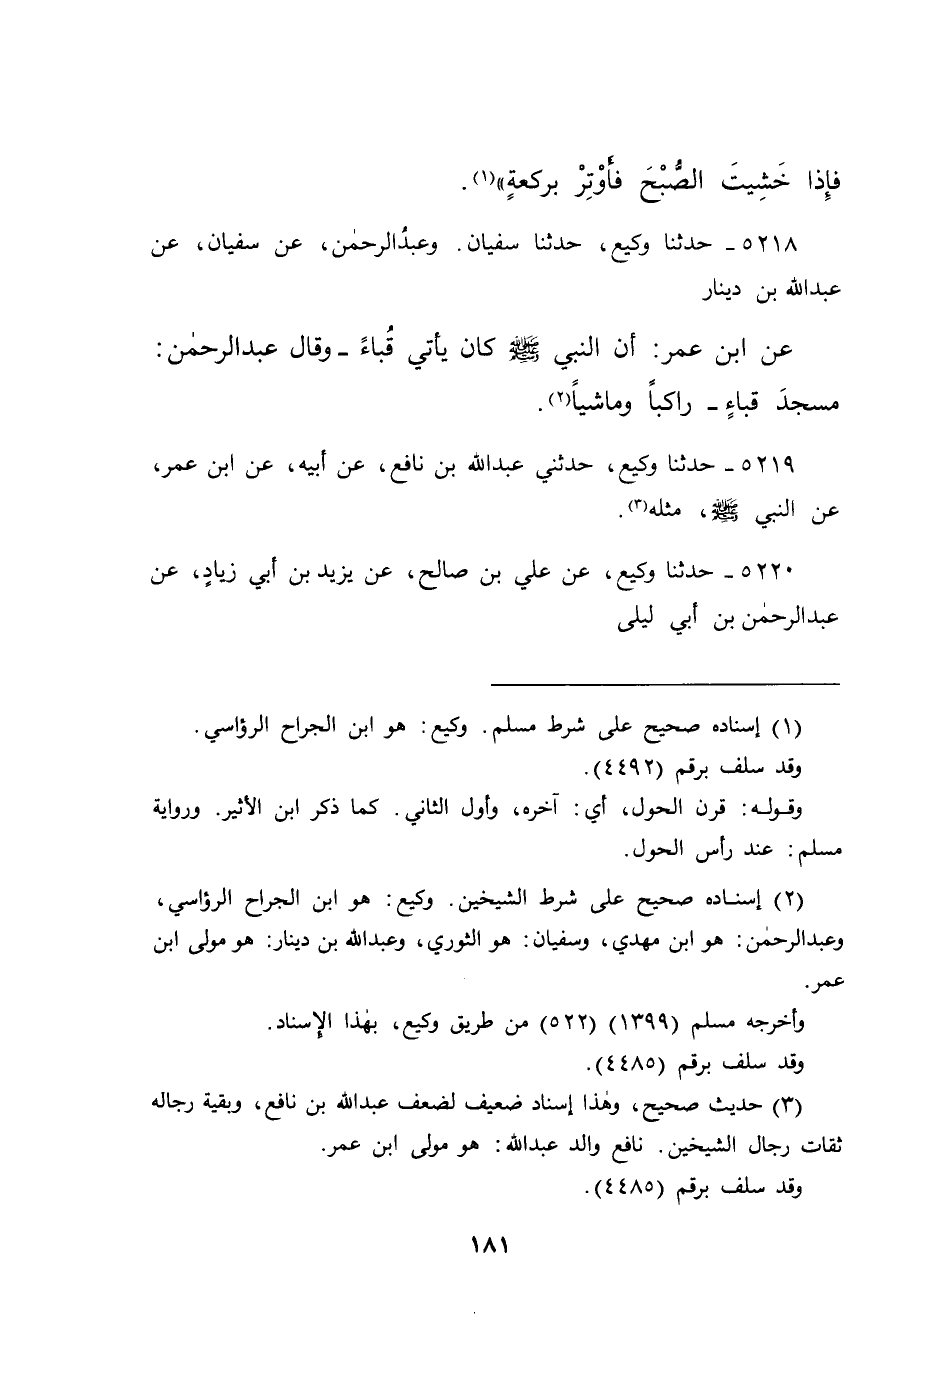 فإِذا خَشِيتَ الصُّبْحَ فأَوْتِرْ بركعةٍ»(١).
٥٢١٨ ـ حدثنا وكيع، حدثنا سفيان. وعبدُالرحمٰن، عن سفيان، عن
عبدالله بن دينار
عن ابن عمر: أن النبي ﷺ كان يأتي قُباءً ـ وقال عبدالرحمٰن:
مسجدَ قباءٍ ـ راكباً وماشياً(٢).
٥٢١٩ ـ حدثنا وكيع، حدثني عبدالله بن نافع، عن أبيه، عن ابن عمر،
عن النبي ﷺ، مثله(٣).
٥٢٢٠ ـ حدثنا وكيع، عن علي بن صالح، عن يزيد بن أبي زيادٍ، عن
عبدالرحمٰن بن أبي ليلى
(١) إسناده صحيح على شرط مسلم. وكيع: هو ابن الجراح الرؤاسي.
وقد سلف برقم (٤٤٩٢).
وقوله: قرن الحول، أي: آخره، وأول الثاني. كما ذكر ابن الأثير. ورواية
مسلم: عند رأس الحول.
(٢) إسناده صحيح على شرط الشيخين. وكيع: هو ابن الجراح الرؤاسي،
وعبدالرحمٰن: هو ابن مهدي، وسفيان: هو الثوري، وعبدالله بن دينار: هو مولى ابن
عمر.
وأخرجه مسلم (١٣٩٩) (٥٢٢) من طريق وكيع، بهٰذا الإسناد.
وقد سلف برقم (٤٤٨٥).
(٣) حديث صحيح، وهٰذا إسناد ضعيف لضعف عبدالله بن نافع، وبقية رجاله
ثقات رجال الشيخين. نافع والد عبدالله: هو مولى ابن عمر.
وقد سلف برقم (٤٤٨٥).
١٨١